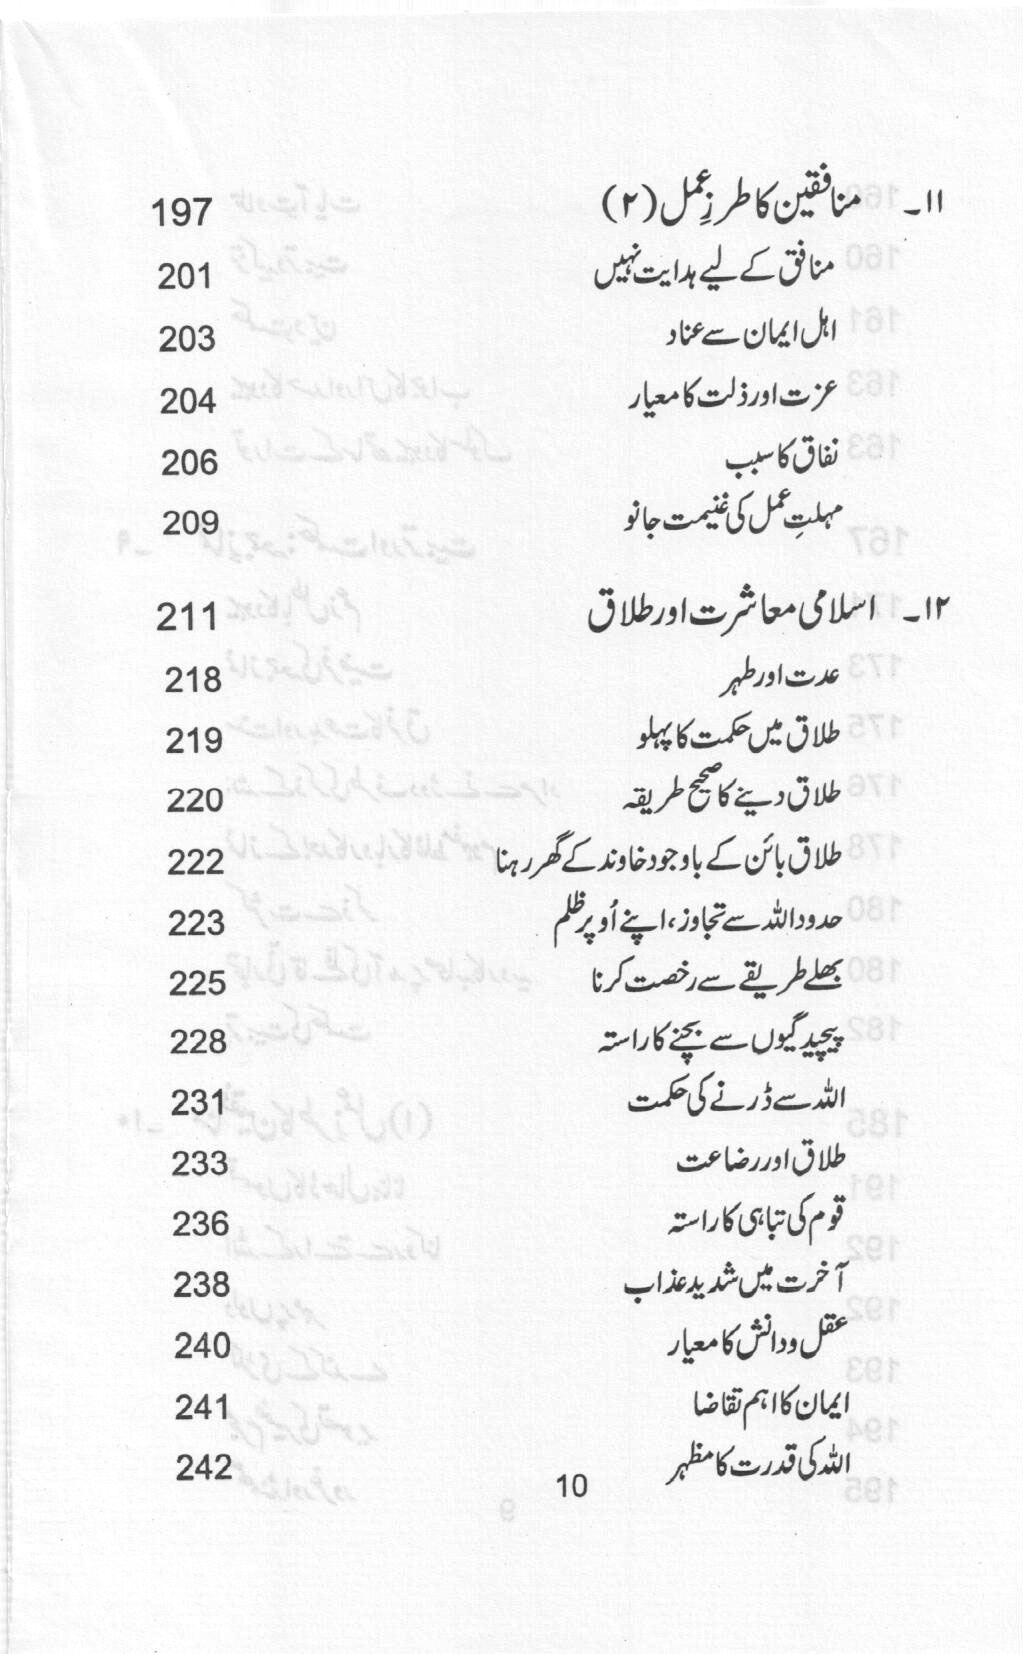 ۱۱۔ منافقین کا طرزِ عمل (۲) 197
منافق کے لیے ہدایت نہیں 201
اہل ایمان سے عناد 203
عزت اور ذلت کا معیار 204
نفاق کا سبب 206
مہلتِ عمل کی غنیمت جانو 209
۱۲۔ اسلامی معاشرت اور طلاق 211
عدت اور طہر 218
طلاق میں حکمت کا پہلو 219
طلاق دینے کا صحیح طریقہ 220
طلاق بائن کے باوجود خاوند کے گھر رہنا 222
حدود اللہ سے تجاوز، اپنے اُوپر ظلم 223
بھلے طریقے سے رخصت کرنا 225
پیچیدگیوں سے بچنے کا راستہ 228
اللہ سے ڈرنے کی حکمت 231
طلاق اور رضاعت 233
قوم کی تباہی کا راستہ 236
آخرت میں شدید عذاب 238
عقل و دانش کا معیار 240
ایمان کا اہم تقاضا 241
اللہ کی قدرت کا مظہر 242
10